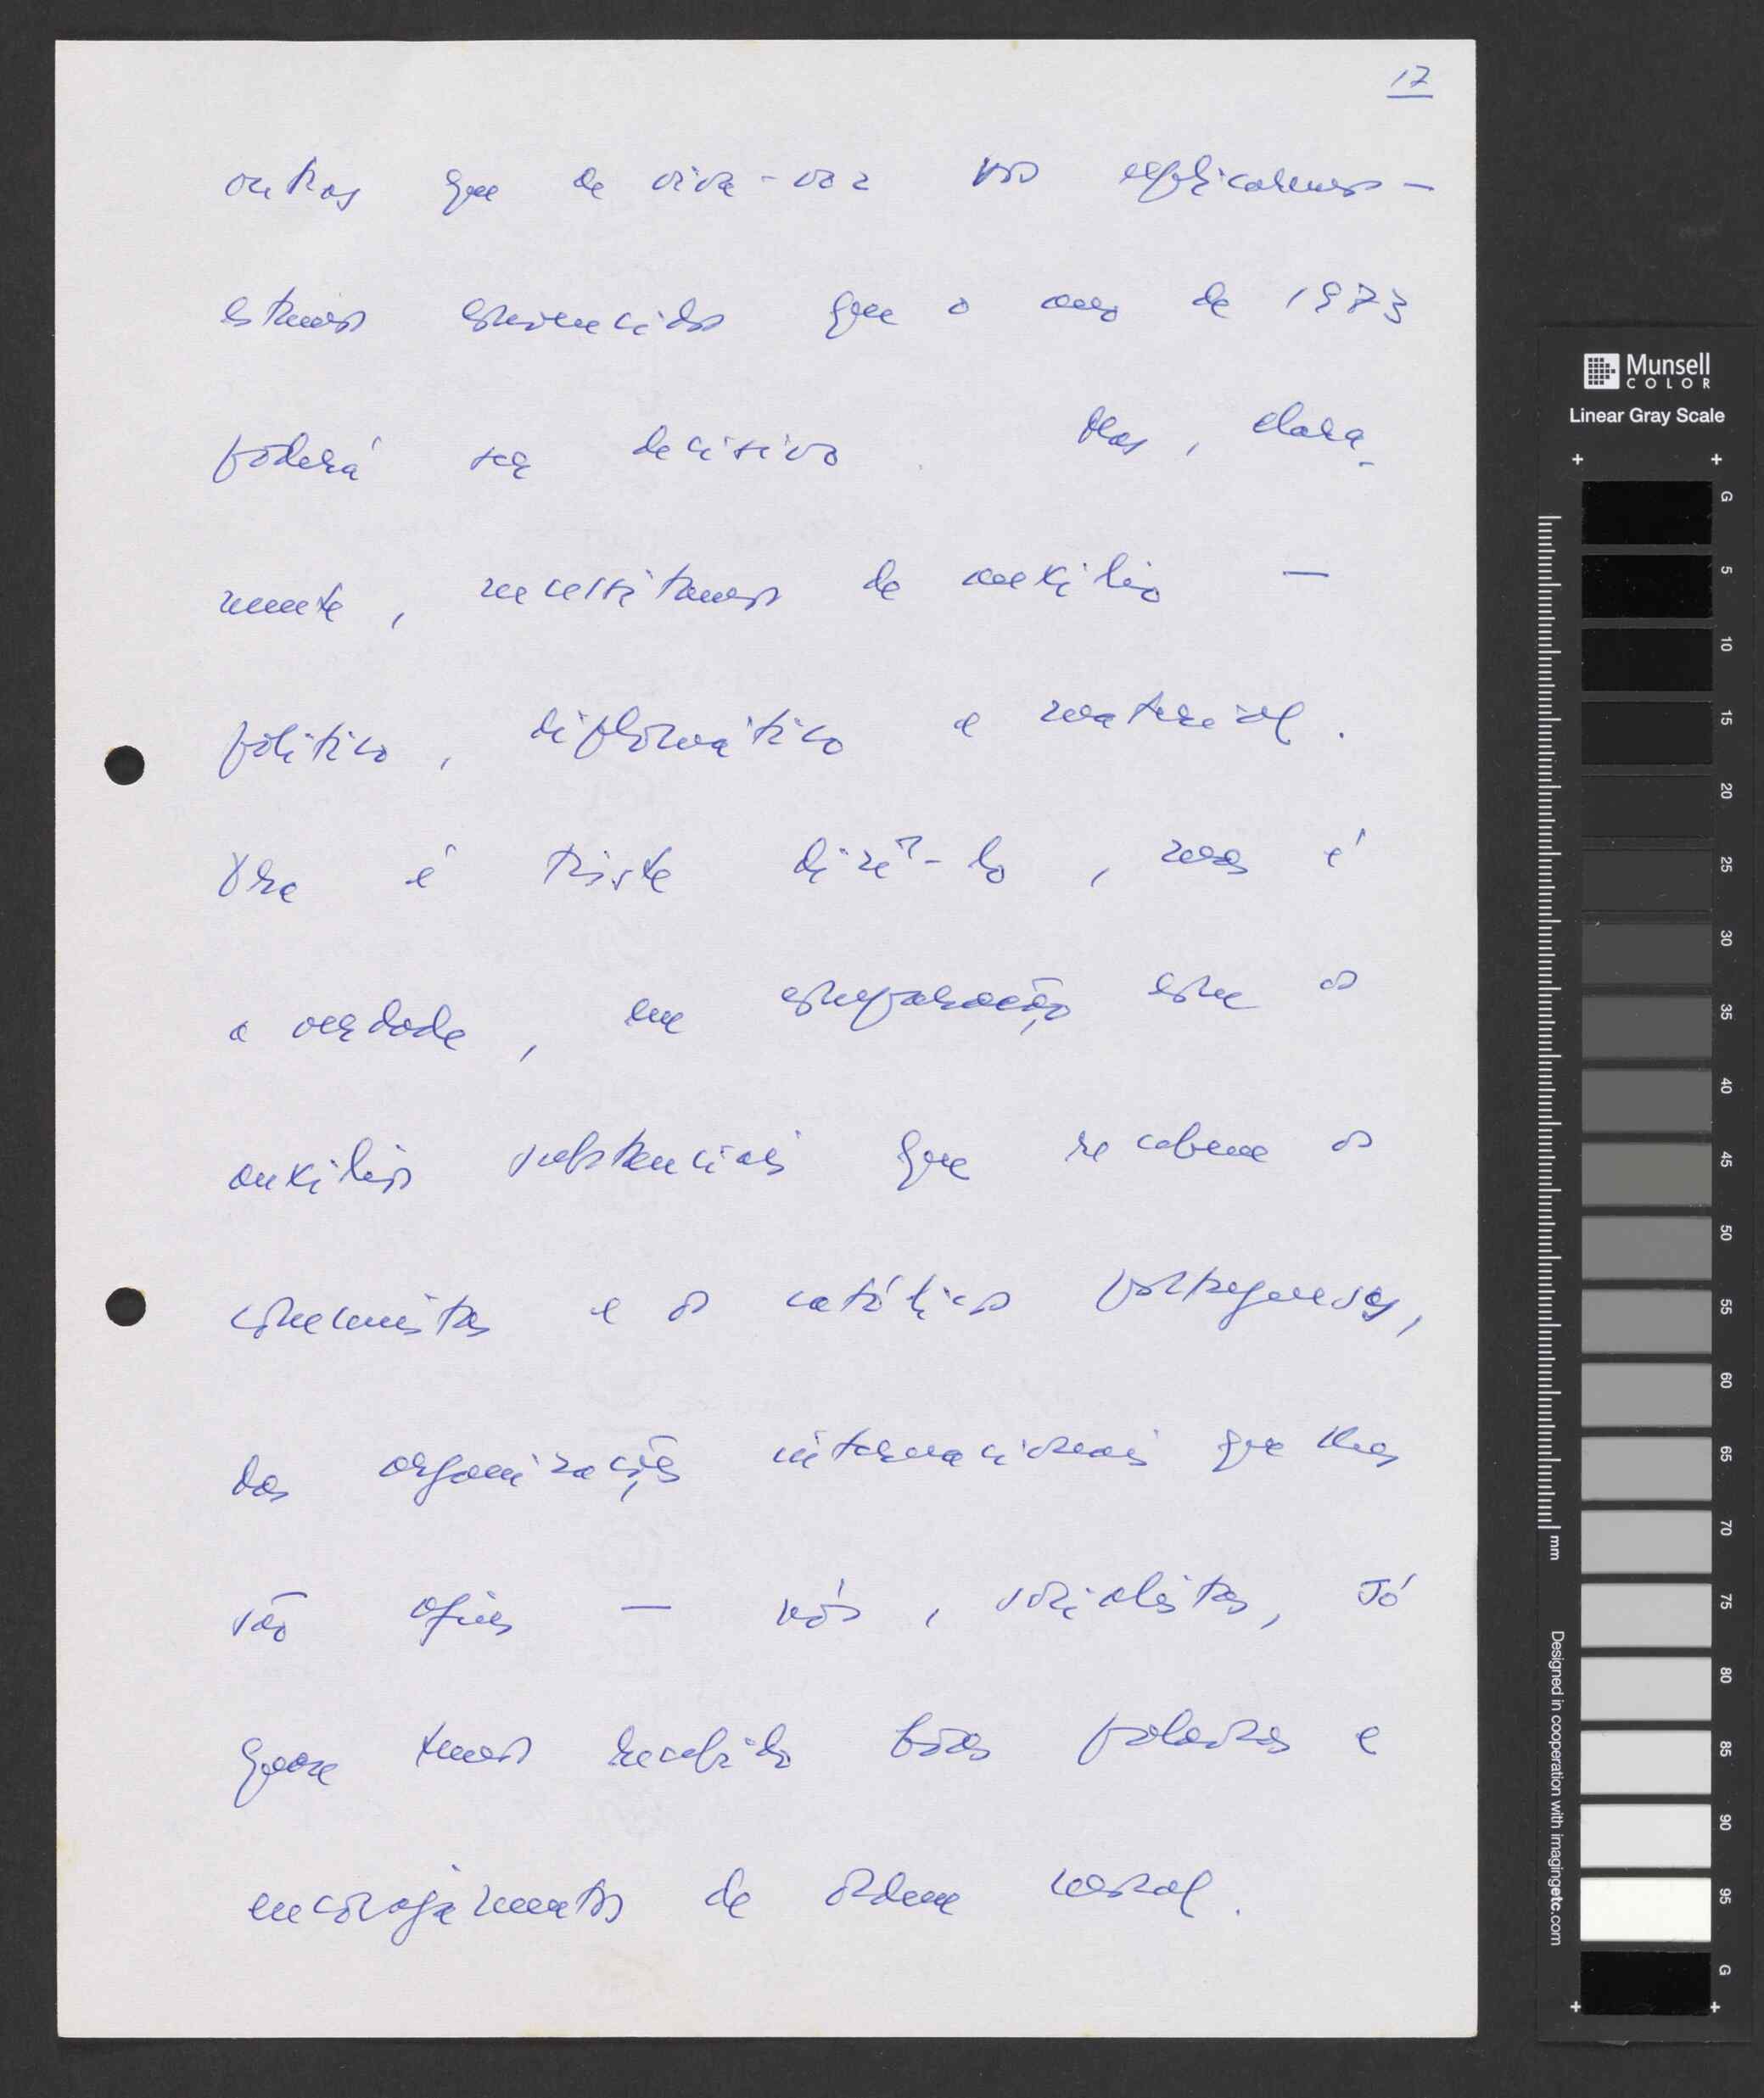 17
outras que de viva-voz vos explicaremos —
estamos convencidos que o ano de 1973
poderá ser decisivo. Mas, clara-
mente, necessitamos de auxílio —
político, diplomático e material.
Ora é triste dizê-lo, mas é
a verdade, em comparação com os
auxílios substanciais que recebem os
comunistas e os católicos portugueses,
das organizações internacionais que lhes
são afins — nós, socialistas, só
quase temos recebido boas palavras e
encorajamentos de ordem moral.
Munsell
COLOR
Linear Gray Scale
G
5
10
15
20
25
30
35
40
45
50
55
60
65
70
75
80
85
90
95
G
mm
Designed in cooperation with imagingetc.com